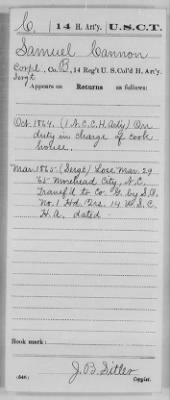 C. | 14 H. Art'y. | U.S.C.T.
Samuel Cannon
Corpl., Co. B, 14 Reg't U.S. Col'd H. Art'y.
Sergt
Appears on Returns as follows:
Oct. 1864. (1 N.C.C.H. Arty) On
duty in charge of cook
house.
Mar. 1865. (Sergt) Loss Mar. 29
65 Morehead City, N.C.
Transf'd to Co. G. by S.O.
No. 1 Hd. Qrs. 14 U.S.C.
H.A. dated
Book mark:
(546) J. B. Sitler
Copyist.